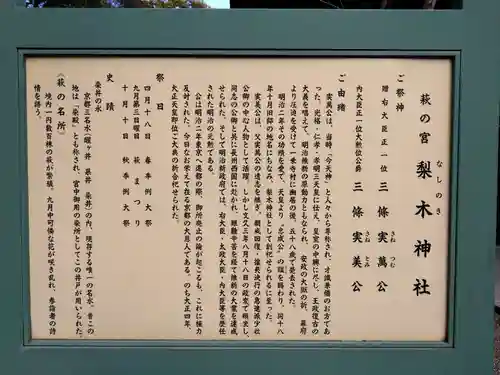 萩の宮 梨木神社
なしのき
ご祭神
贈右大臣正一位 三條実萬公
さね つむ
内大臣正一位大勲位公爵 三條実美公
さね とみ
ご由緒
実萬公は、当時、「今天神」と人々から尊称され、才識兼備のお方であ
った。光格・仁孝・孝明三天皇に仕え、皇室の中興に尽し、王政復古の
大義を唱えて、明治維新の原動力ともなられ、安政の大獄の折、幕府
より圧迫を受けて一乗寺村に幽居の後、五十八歳で薨去された。
明治二年その功績を愛で、天皇より「忠成公」の諡を賜わり、同十八
年十月旧邸の地名にちなみ、梨木神社として創祀せられるに至った。
実美公は、父実萬公の遺志を継ぎ、朝威回復・攘夷決行の急進派少壮
公卿の中心人物として活躍。しかし文久三年八月十八日の政変で頓坐し、
同志の公卿と共に長州西国に赴かれ、艱難辛苦を経て維新の大業を達成
せられた。そして明治新政府では、右大臣・太政大臣・内大臣等を歴任
された明治の元勲である。
公は明治二年東京へ遷都の際、御所廃止の論が起こるも、これに極力
反対された。今日なお栄えて在る京都の大恩人である。のち大正四年、
大正天皇即位ご大典の折合祀せられた。
祭日
四月十八日 春季例大祭
九月第三日曜日 萩まつり
十月十日 秋季例大祭
史蹟
染井の水
京都三名水（醒ヶ井 縣井 染井）の内、現存する唯一の名水。昔この
地は「染殿」とも称され、宮中御用の染所としてこの井戸が用いられた。
〈萩の名所〉
境内一円数百株の萩が繁殖、九月中可憐な花が咲き乱れ、参詣者の詩
情を誘う。